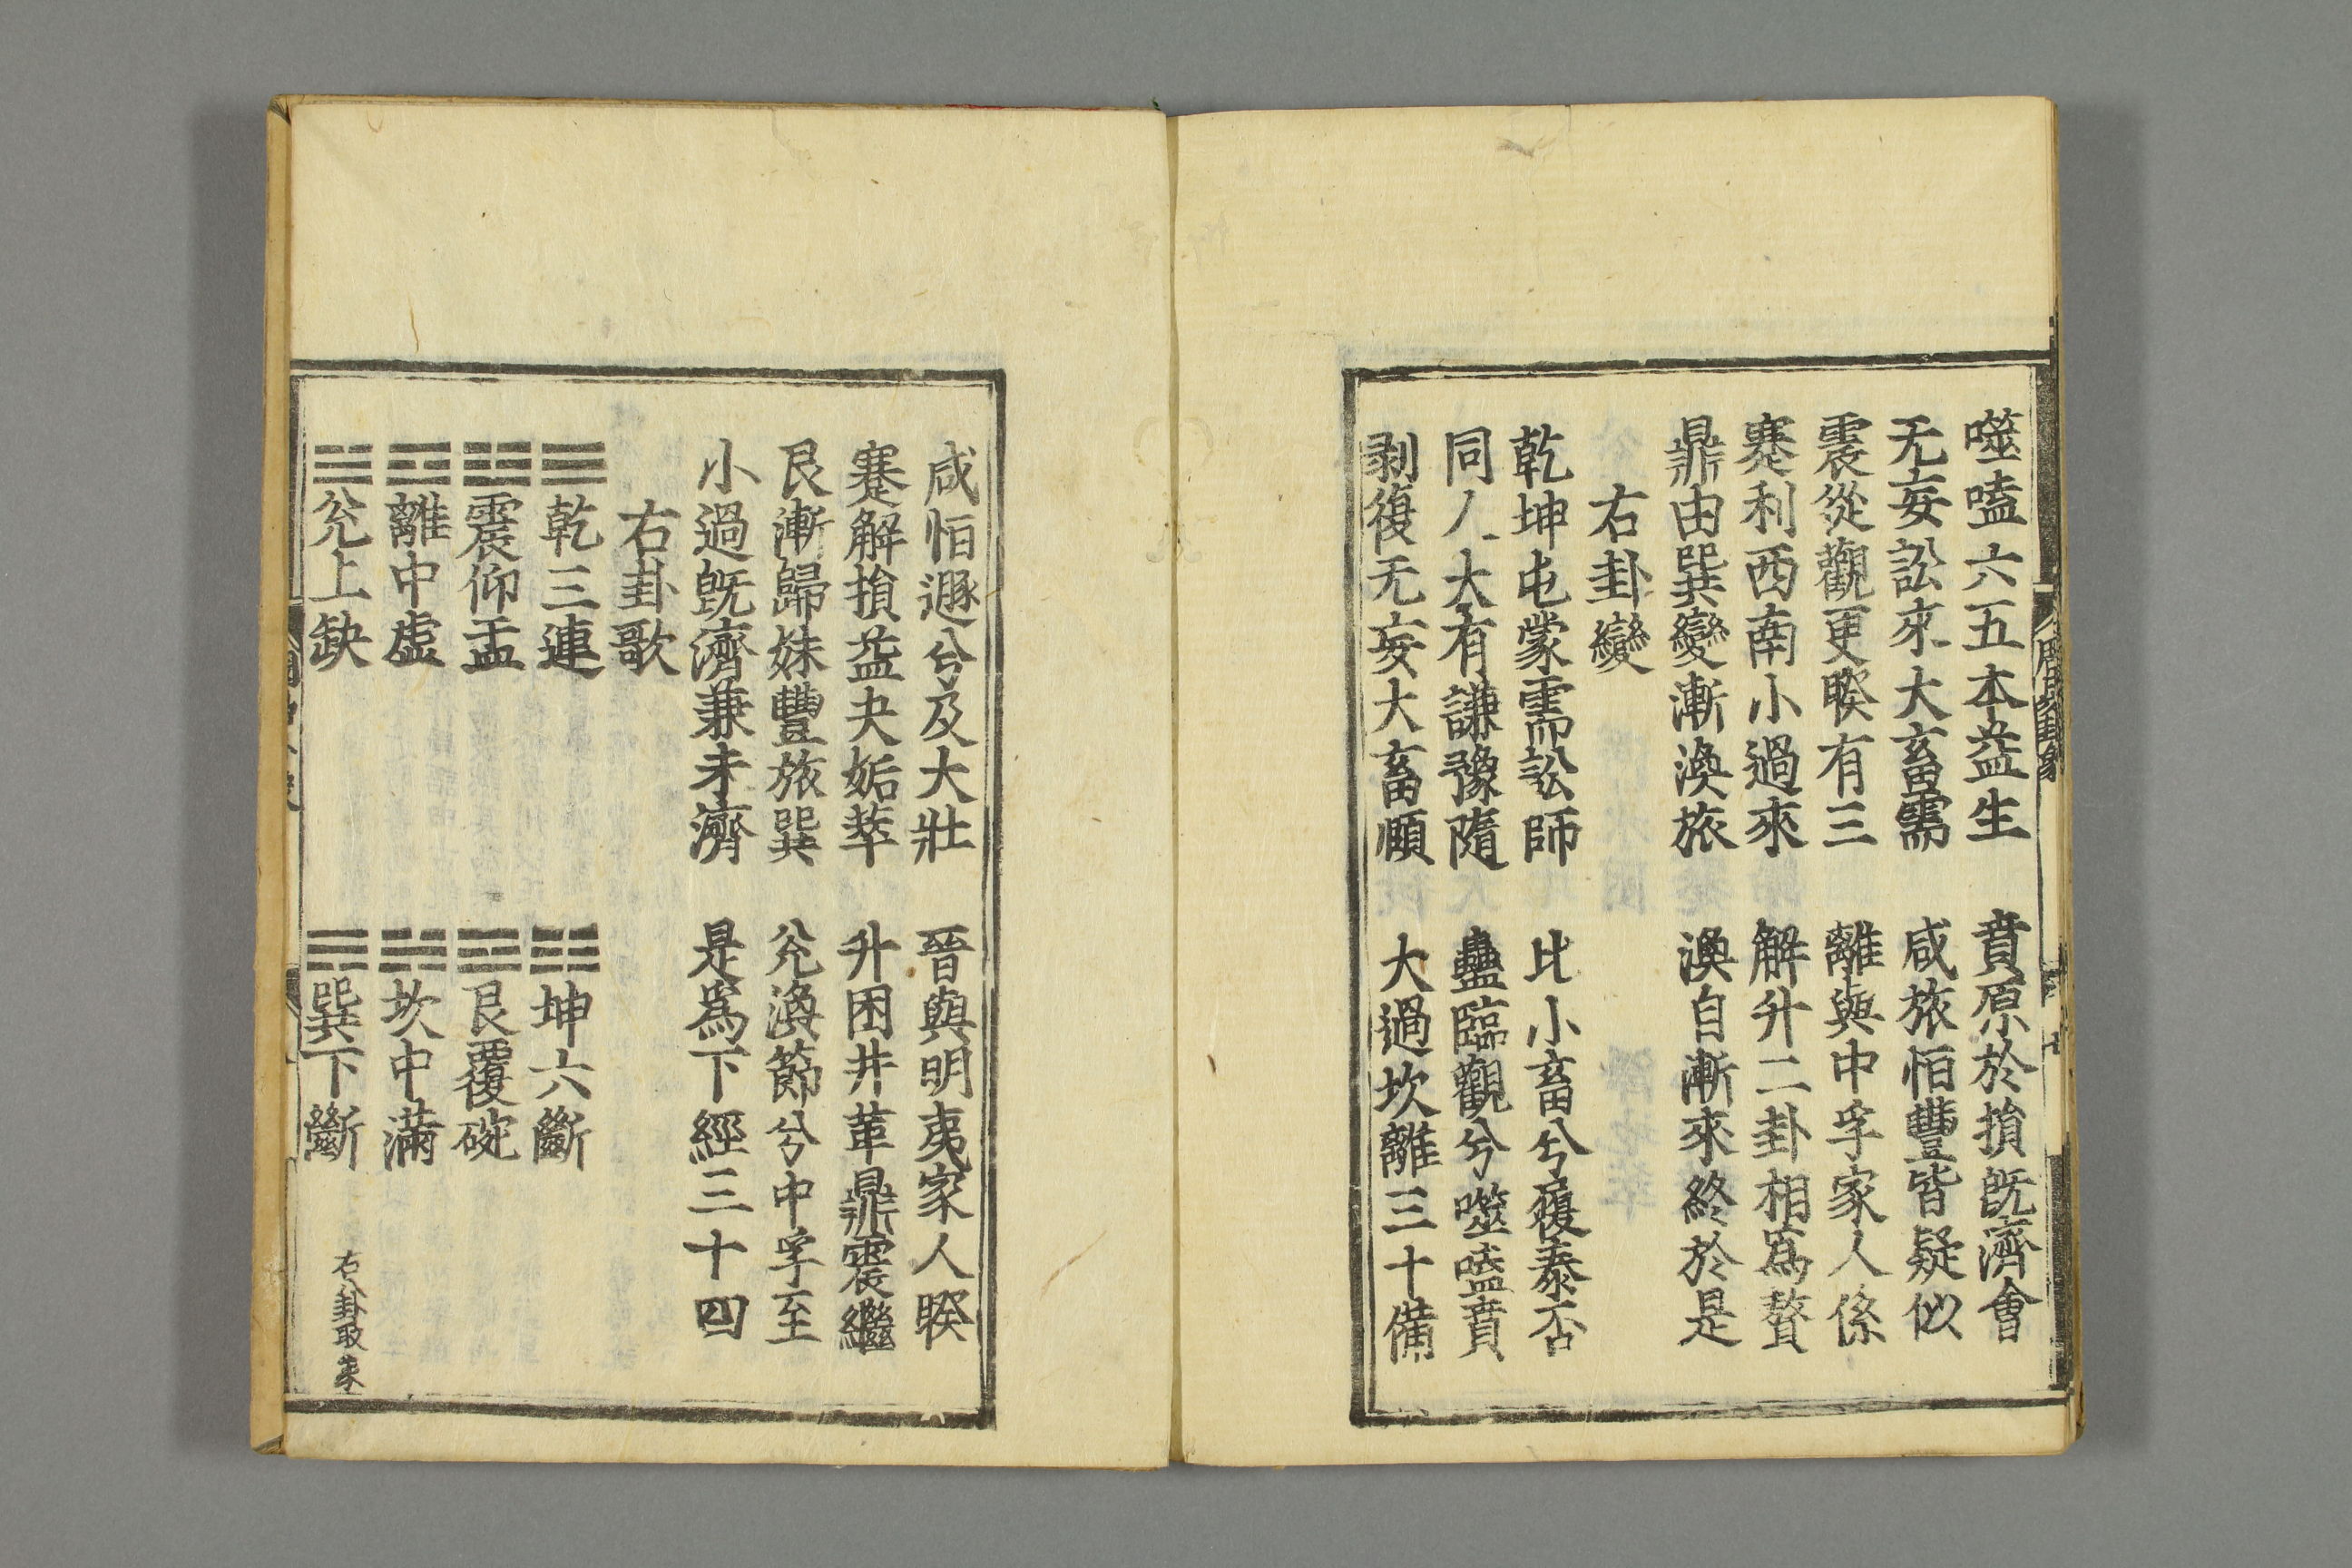 噬嗑六五本益生　賁原於損旣濟會
无妄訟來大畜需　咸旅恒豐皆疑似
震從觀更睽有三　離與中孚家人係
蹇利西南小過來　解升二卦相爲贅
鼎由巽變漸渙旅　渙自漸來終於是
右卦變
乾坤屯蒙需訟師　比小畜兮履泰否
同人大有謙豫隨　蠱臨觀兮噬嗑賁
剥復无妄大畜頤　大過坎離三十備
咸恒遯兮及大壯　晉與明夷家人睽
蹇解損益夬姤萃　升困井革鼎震繼
艮漸歸妹豐旅巽　兊渙節兮中孚至
小過旣濟兼未濟　是爲下經三十四
右卦歌
☰乾三連　☷坤六斷
☳震仰盂　☶艮覆碗
☲離中虛　☵坎中滿
☱兊上缺　☴巽下斷
右八卦取象